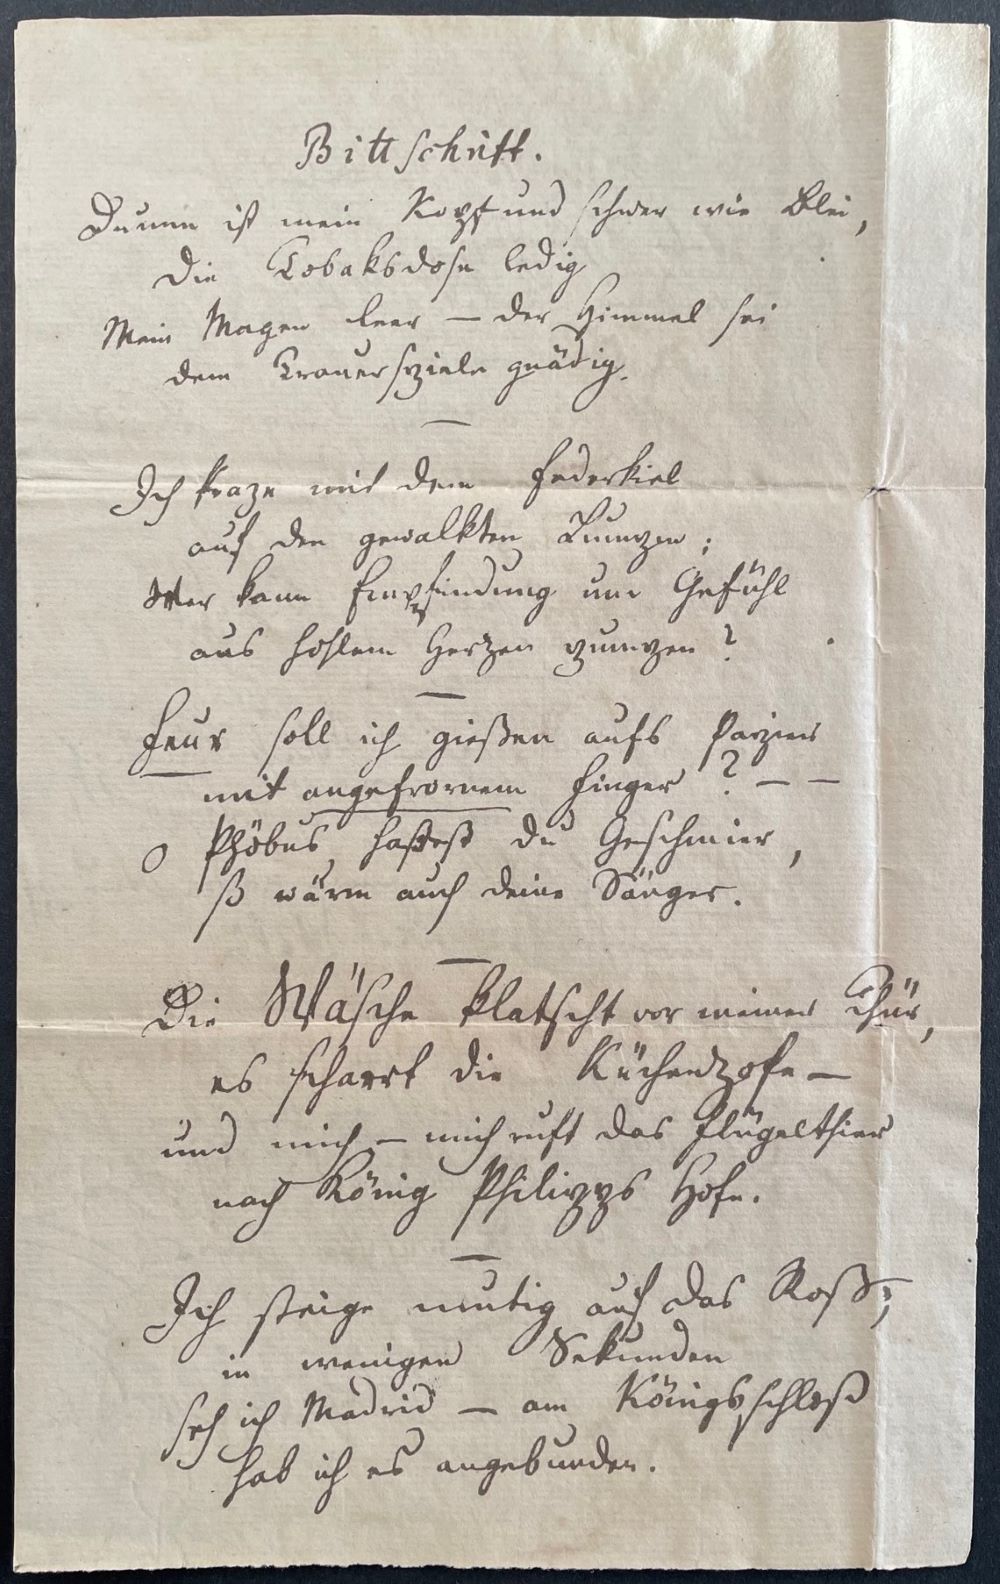 Bittschrift.
Dumm ist mein Kopf und schwer wie Blei,
die Tobaksdose ledig
Mein Magen leer — der Himmel sei
dem Trauerspiele gnädig.
—
Ich kraze mit dem Federkiel
auf den gewalkten Lumpen;
Wer kann Empfindung und Gefühl
aus hohlem Herzen pumpen?
—
Feur soll ich gießen aufs Papier
mit angefrornem Finger? — —
O Phöbus, haßest du Geschmier,
so wärm auch deine Sänger.
—
Die Wäsche klatscht vor meiner Thür,
es scharrt die Küchenzofe —
und mich — mich ruft das Flügelthier
nach König Philipps Hofe.
—
Ich steige mutig auf das Roß;
in wenigen Sekunden
seh ich Madrid — am Königsschloß
hab ich es angebunden.